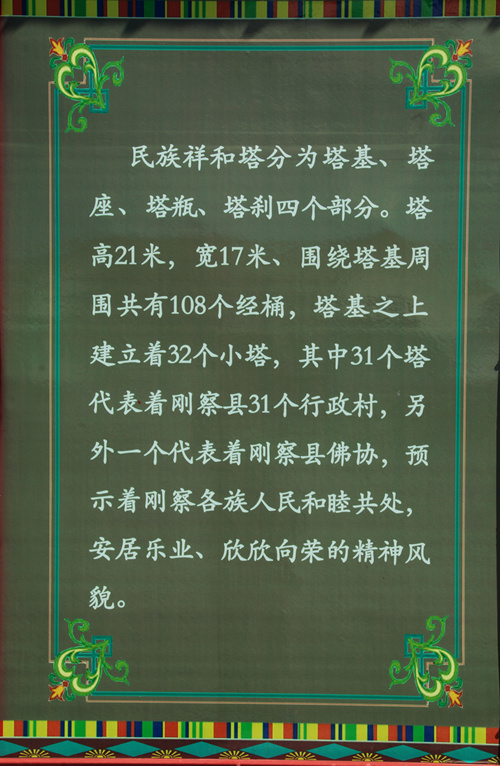 民族祥和塔分为塔基、塔
座、塔瓶、塔刹四个部分。塔
高21米，宽17米、围绕塔基周
围共有108个经桶，塔基之上
建立着32个小塔，其中31个塔
代表着刚察县31个行政村，另
外一个代表着刚察县佛协，预
示着刚察各族人民和睦共处，
安居乐业、欣欣向荣的精神风
貌。